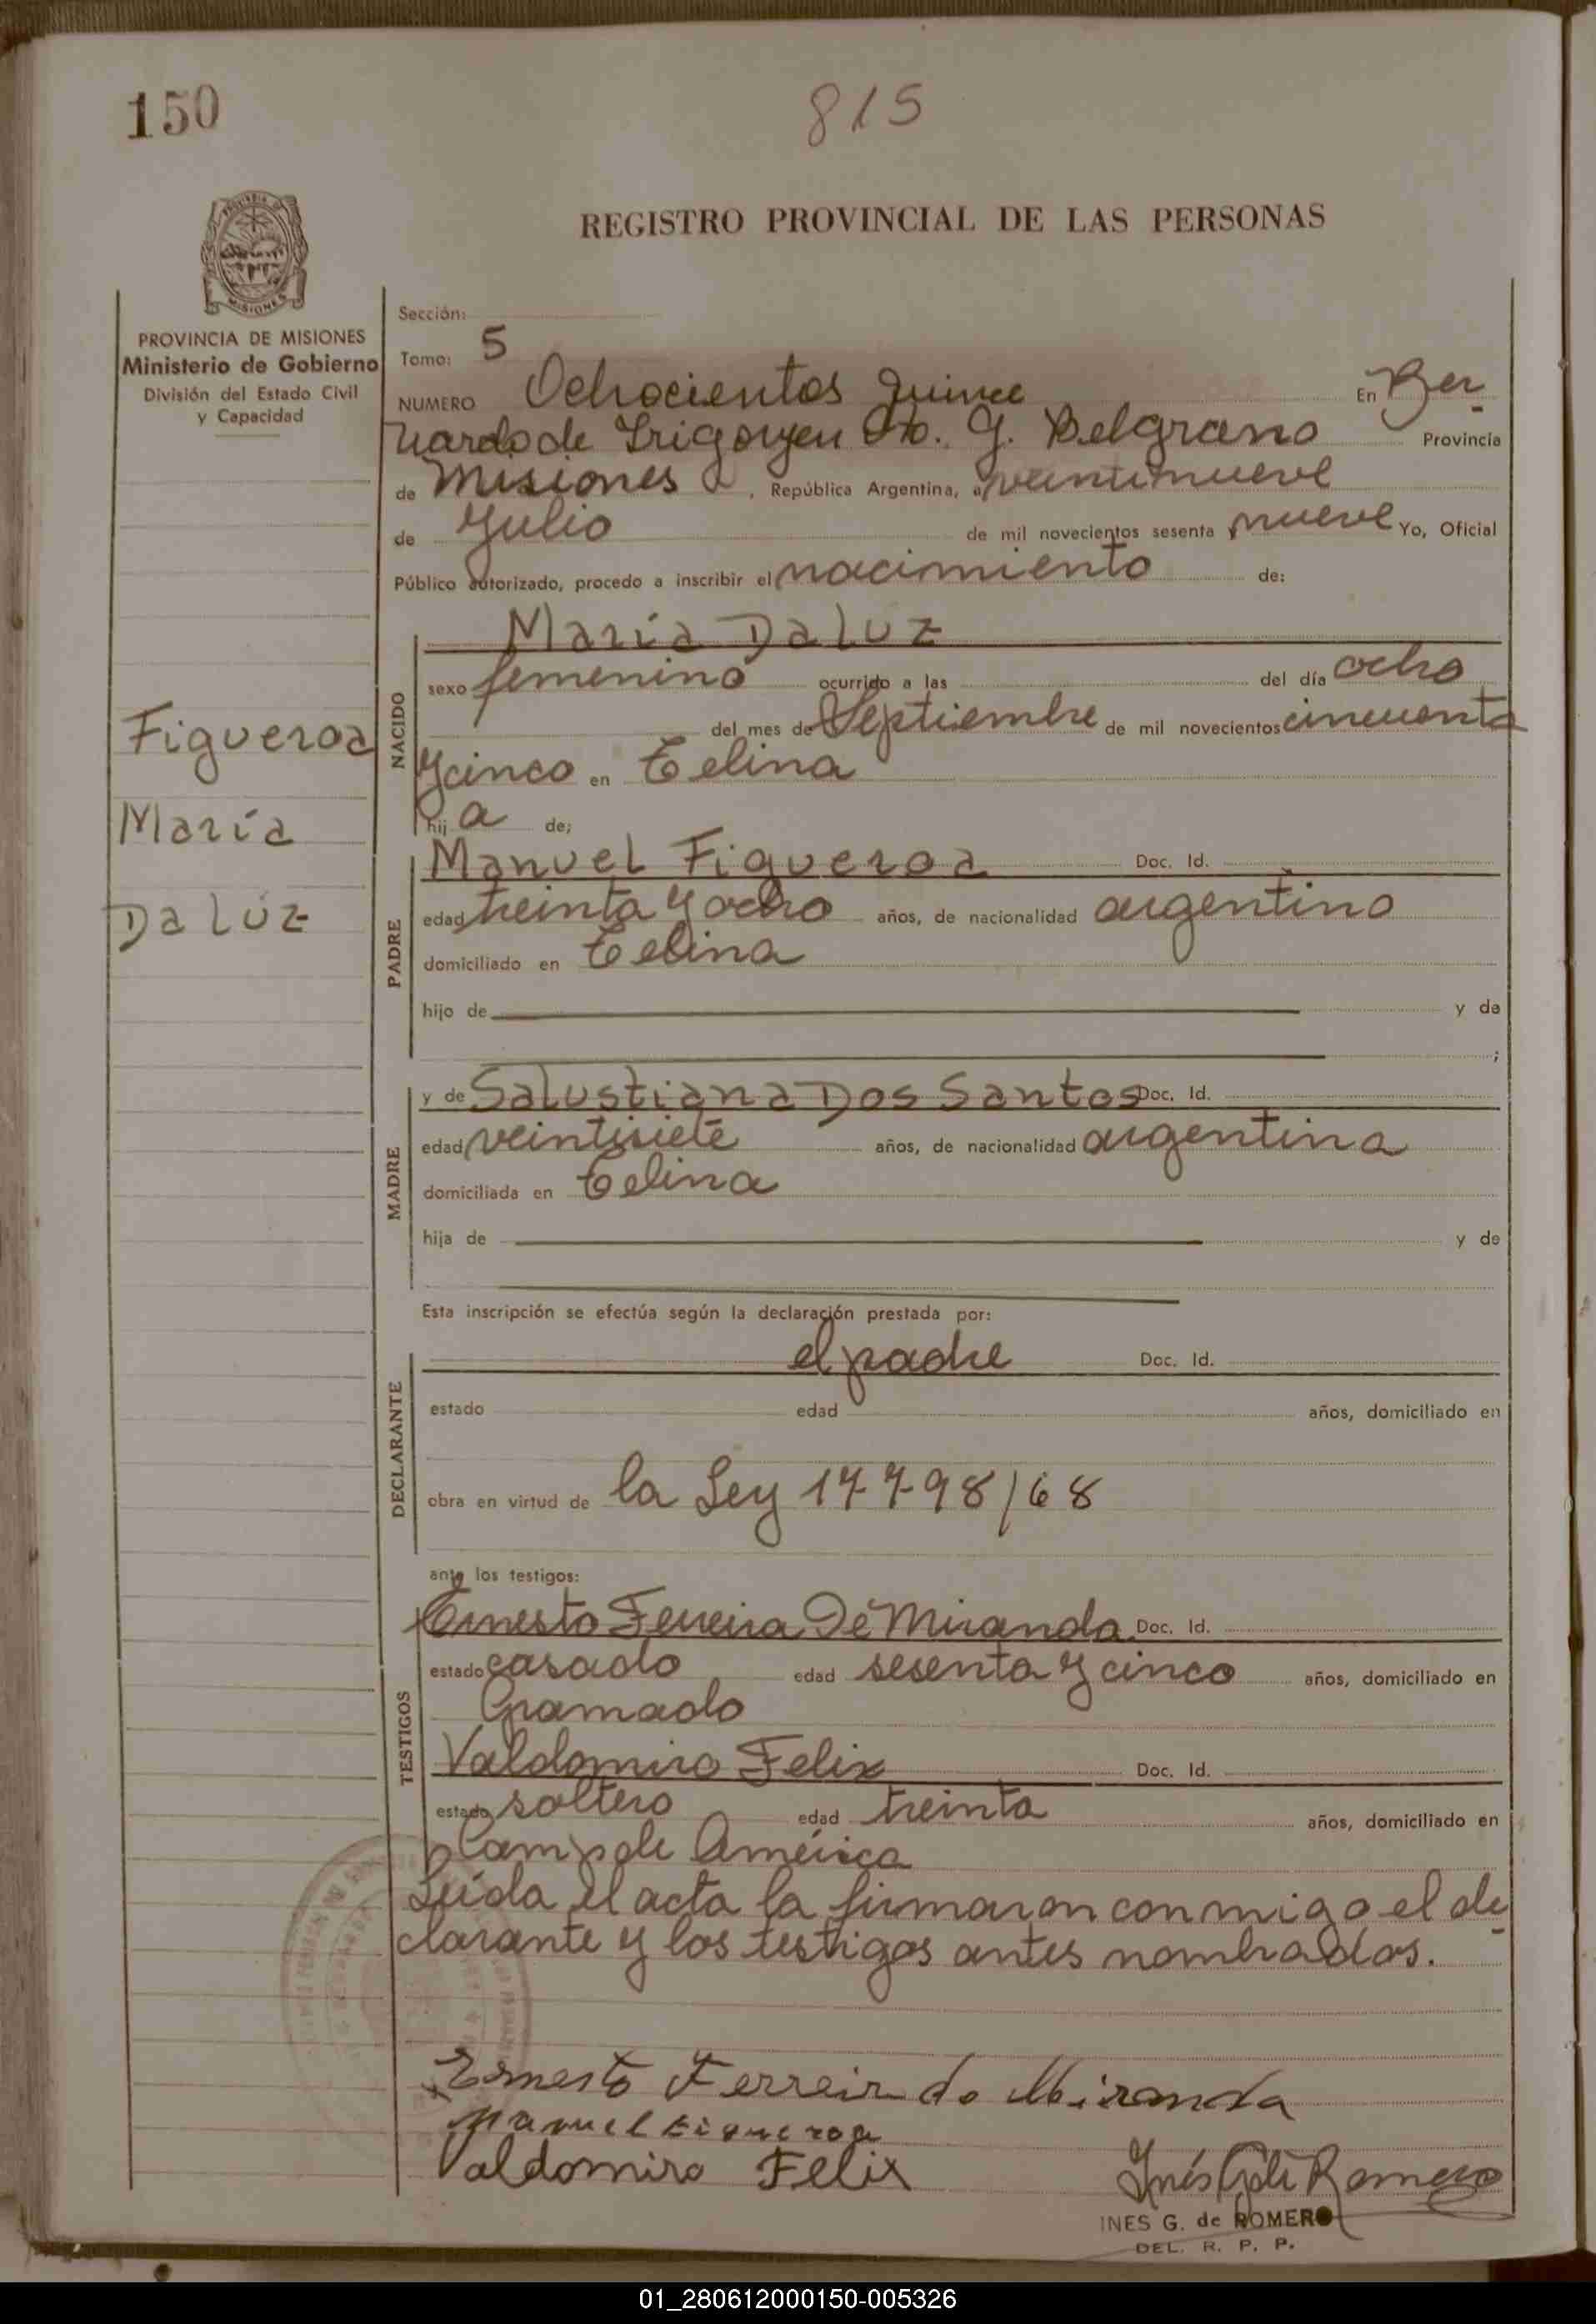 150
815
REGISTRO PROVINCIAL DE LAS PERSONAS
MISIONES
PROVINCIA DE MISIONES
Ministerio de Gobierno
División del Estado Civil
y Capacidad
Figueroa
María
Da Lúz
Sección:
Tomo: 5
NUMERO Ochocientos quince En Ber-
nardo de Irigoyen Dto. G. Belgrano Provincia
de Misiones, República Argentina, a veintinueve
de Julio de mil novecientos sesenta y nueve Yo, Oficial
Público autorizado, procedo a inscribir el nacimiento de:
NACIDO
María Da Lúz
sexo femenino ocurrido a las del día ocho
del mes de Septiembre de mil novecientos cincuenta
y cinco en Celina
hij a de;
PADRE
Manuel Figueroa Doc. Id.
edad treinta y ocho años, de nacionalidad argentino
domiciliado en Celina
hijo de y de
;
MADRE
y de Salustiana Dos Santos Doc. Id.
edad veintisiete años, de nacionalidad argentina
domiciliada en Celina
hija de y de
Esta inscripción se efectúa según la declaración prestada por:
DECLARANTE
el padre Doc. Id.
estado edad años, domiciliado en
obra en virtud de la Ley 17798/68
ante los testigos:
TESTIGOS
Ernesto Ferreira De Miranda Doc. Id.
estado casado edad sesenta y cinco años, domiciliado en
Gramado
Valdomiro Felix Doc. Id.
estado soltero edad treinta años, domiciliado en
América
Leída el acta la firmaron conmigo el de-
clarante y los testigos antes nombrados.
Ernesto Ferreir de Miranda
Manuel Figueroa
Valdomiro Felix
Inés G de Romero
INES G. de ROMERO
DEL. R. P. P.
01_280612000150-005326